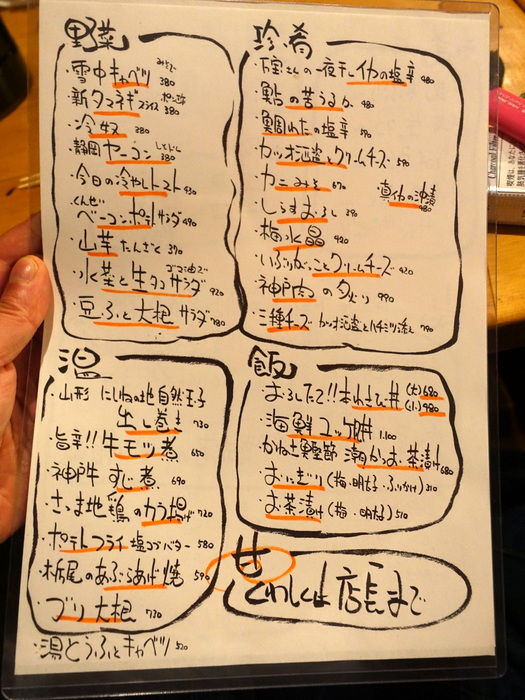 野菜
・雪中キャベツ みそで 380
・新タマネギスライス ポン酢 380
・冷奴 380
・静岡ヤーコン 380
・今日の冷やしトマト 430
くんせい
・ベーコンポテトサラダ 490
・山芋たんざく 370
ゴマ油で
・水茎と生タコサラダ 920
・豆ふと大根サラダ 780
珍肴
・一夜干しイカの塩辛 480
・鮎の苦うるか 480
・鯛わたの塩辛 570
・カツオ酒盗とクリームチーズ 590
・カニみそ 670
真イカの沖漬 480
・しらすおろし 390
・梅水晶 490
・いぶりがっことクリームチーズ 620
・神戸肉の夕々り 990
・三種チーズ カツオ酒盗とハチミツ添え 790
温
・山形 にしねの地自然玉子
出し巻き 730
・旨辛!!牛モツ煮 650
・神戸牛すじ煮 690
・さつま地鶏のカラ揚げ 720
・ポテトフライ 塩コブバター 580
・栃尾のあぶらあげ焼 590
・ブリ大根 770
・湯とうふとキャベツ 520
飯
・おろしたて!!本わさび丼 (大)680
(小)480
・海鮮ユッケ丼 1.100
・かねさ鰹節 潮かつお茶漬け 680
・おにぎり(梅・明太子・ふりかけ)310
・お茶漬け(梅・明太子)510
甘
くわしくは店長まで